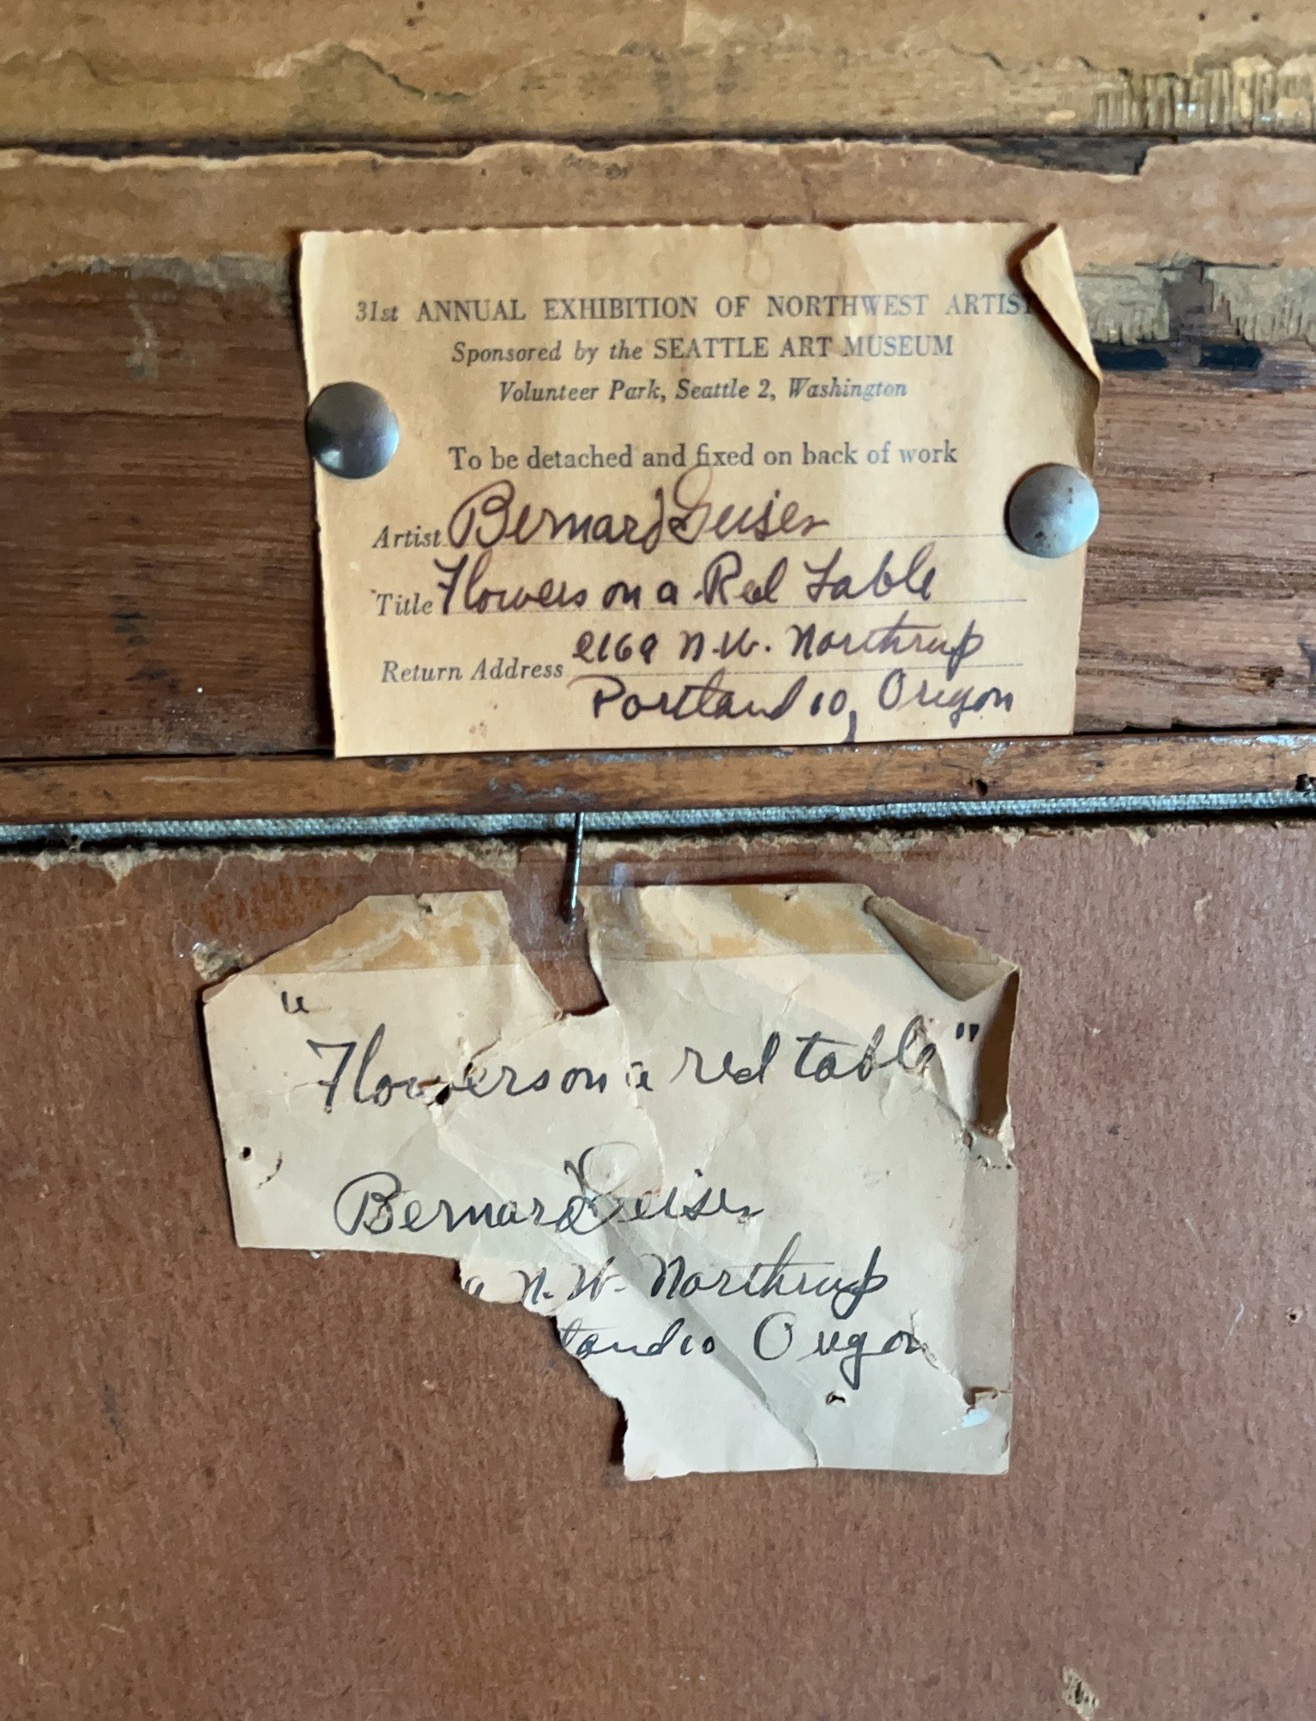 31st ANNUAL EXHIBITION OF NORTHWEST ARTIST
Sponsored by the SEATTLE ART MUSEUM
Volunteer Park, Seattle 2, Washington
To be detached and fixed on back of work
Artist Bernard Geiser
Title Flowers on a Red Table
Return Address 2169 N.W. Northrup
Portland 10, Oregon
"Flowers on a red table"
Bernard Geiser
9 N.W. Northrup
tland 10 Oregon